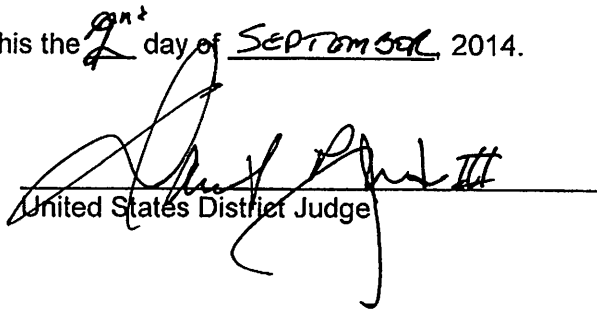 his the 2nd day of SEPTEMBER, 2014.
III
United States District Judge